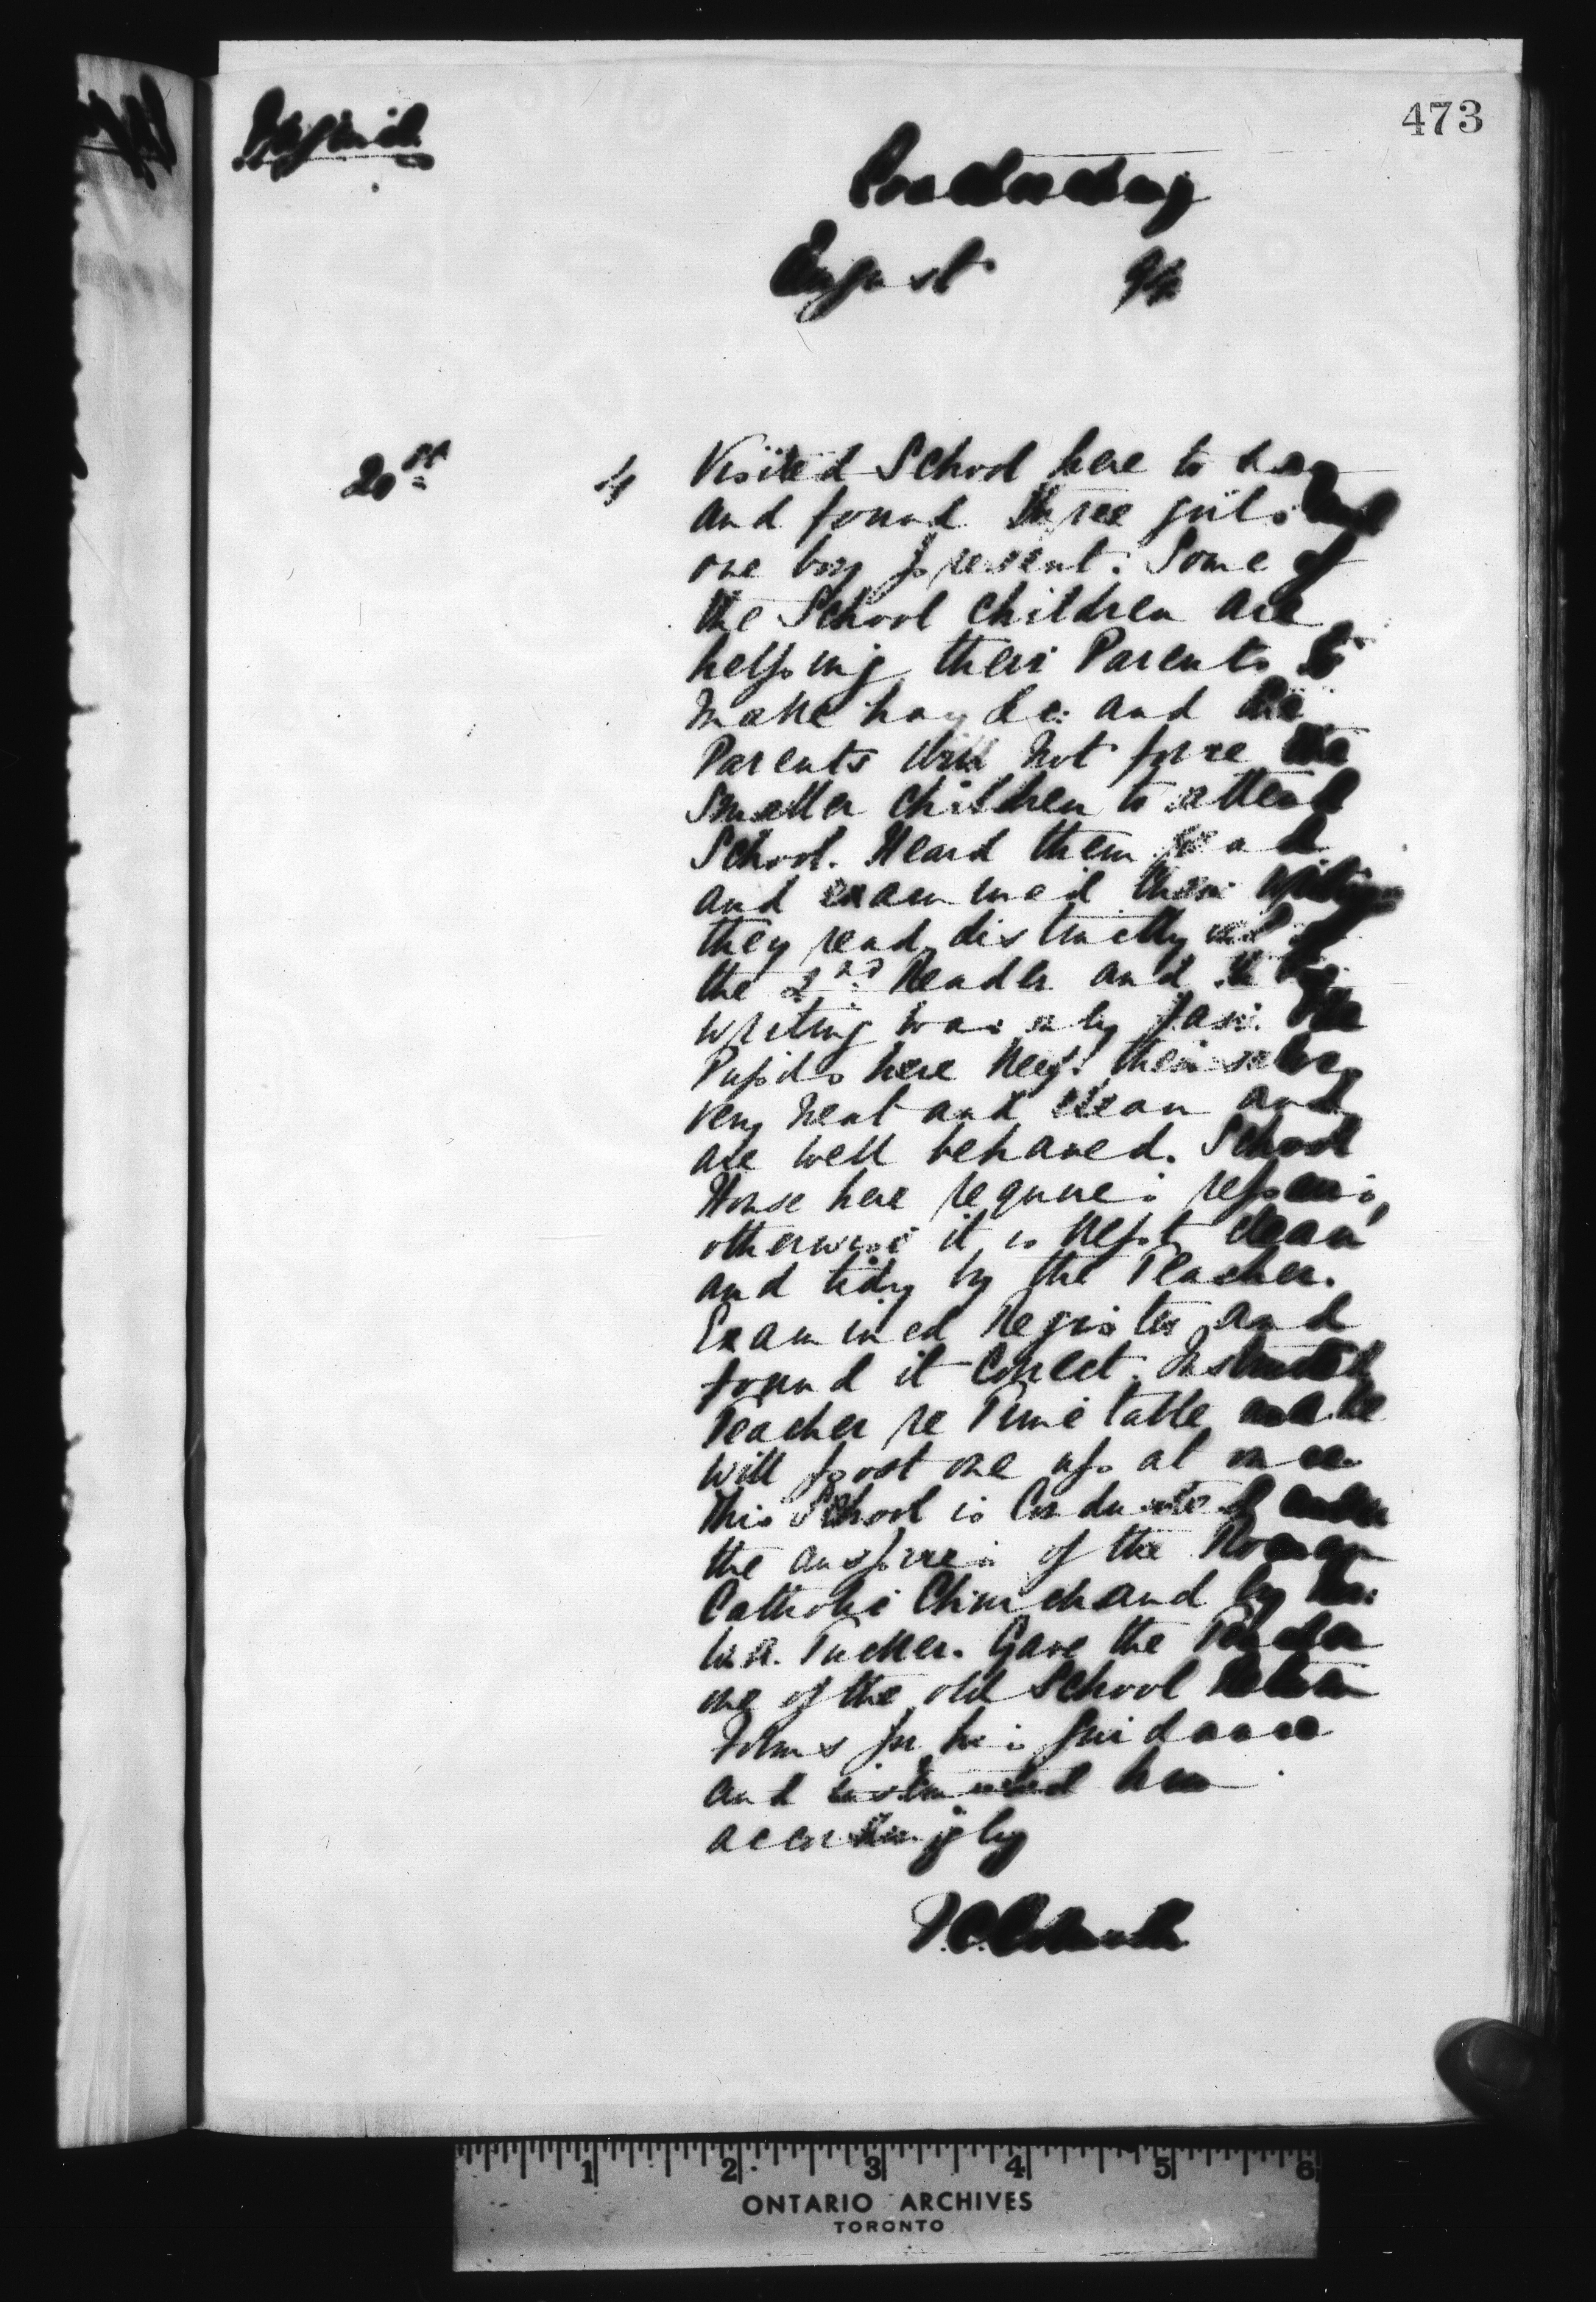 473
August 94
20th 4 Visited School here to day
and found three girls and
one boy present. Some of
the School children are
helping their Parents to
make hay &c: and the
Parents will not force the
smaller children to attend
School. Heard them read
and examined their writing
they read distinctly
the 2nd Reader and the
writing was only fair. The
Pupils here keep themselves
very neat and clean and
are well behaved. School
House here requires repairs,
otherwise it is kept clean
and tidy by the Teacher.
Examined Register and
found it Correct. Instructed
Teacher re Time table and he
will post one up at once.
This School is Conducted under
the auspices of the Roman
Catholic Church and by
Tucker. Gave the Teacher
one of the old School Return
Forms for his guidance
and instructed him
accordingly
1 2 3 4 5 6
ONTARIO ARCHIVES
TORONTO